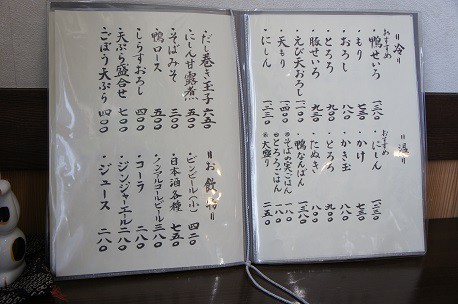 〃冷〃
おすすめ
・鴨せいろ 一三八〇
・もり 七八〇
・おろし 八八〇
・とろろ 九三〇
・豚せいろ 九三〇
・えび天おろし
・天もり 一四〇〇
・にしん 一三三〇
〃温〃
おすすめ
・にしん 一三三〇
・かけ 七八〇
・かき玉 八八〇
・とろろ 九〇〇
・たぬき
・鴨なんばん 一三八〇
◎そばの実ごはん
◎とろろごはん
◎大盛り 二五〇
・だし巻き玉子 六五〇
・にしん甘露煮
・そばみそ 三〇〇
・鴨ロース 五五〇
・しらすおろし 四〇〇
・天ぷら盛合せ 七〇〇
・ごぼう天ぷら 四〇〇
〃お飲物〃
・ビンビール(小) 四二〇
・日本酒各種 七五〇
・ノンアルコールビール 三八〇
・コーラ 二八〇
・ジンジャーエール 二八〇
・ジュース 二八〇